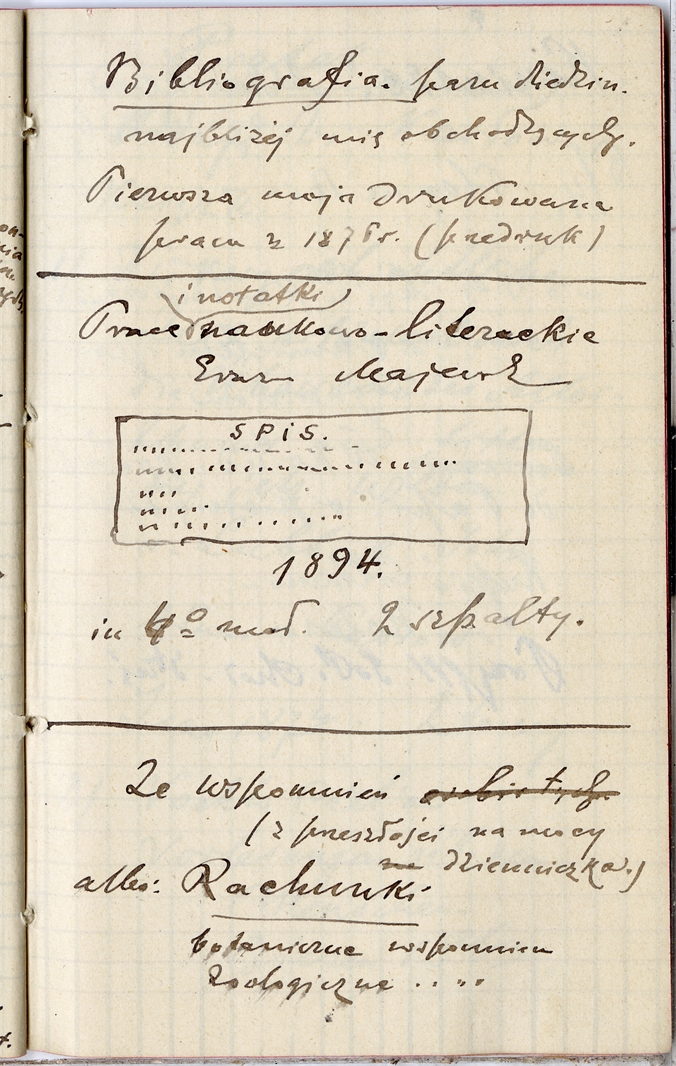 Bibliografia. paru dziedzin.
najbliżej mię obchodzących.
Pierwsza moja drukowana
praca z 1876r. (przedruk)
(i notatki)
Prace naukowo-literackie
Erazm Majewski
SPIS.
1894.
in 4º mał. 2 szpalty.
Ze wspomnień osobistych
(z przeszłości na mocy
na dzienniczka.)
albo: Rachunki
botaniczne wspomnien
Zoologiczne .. ,,